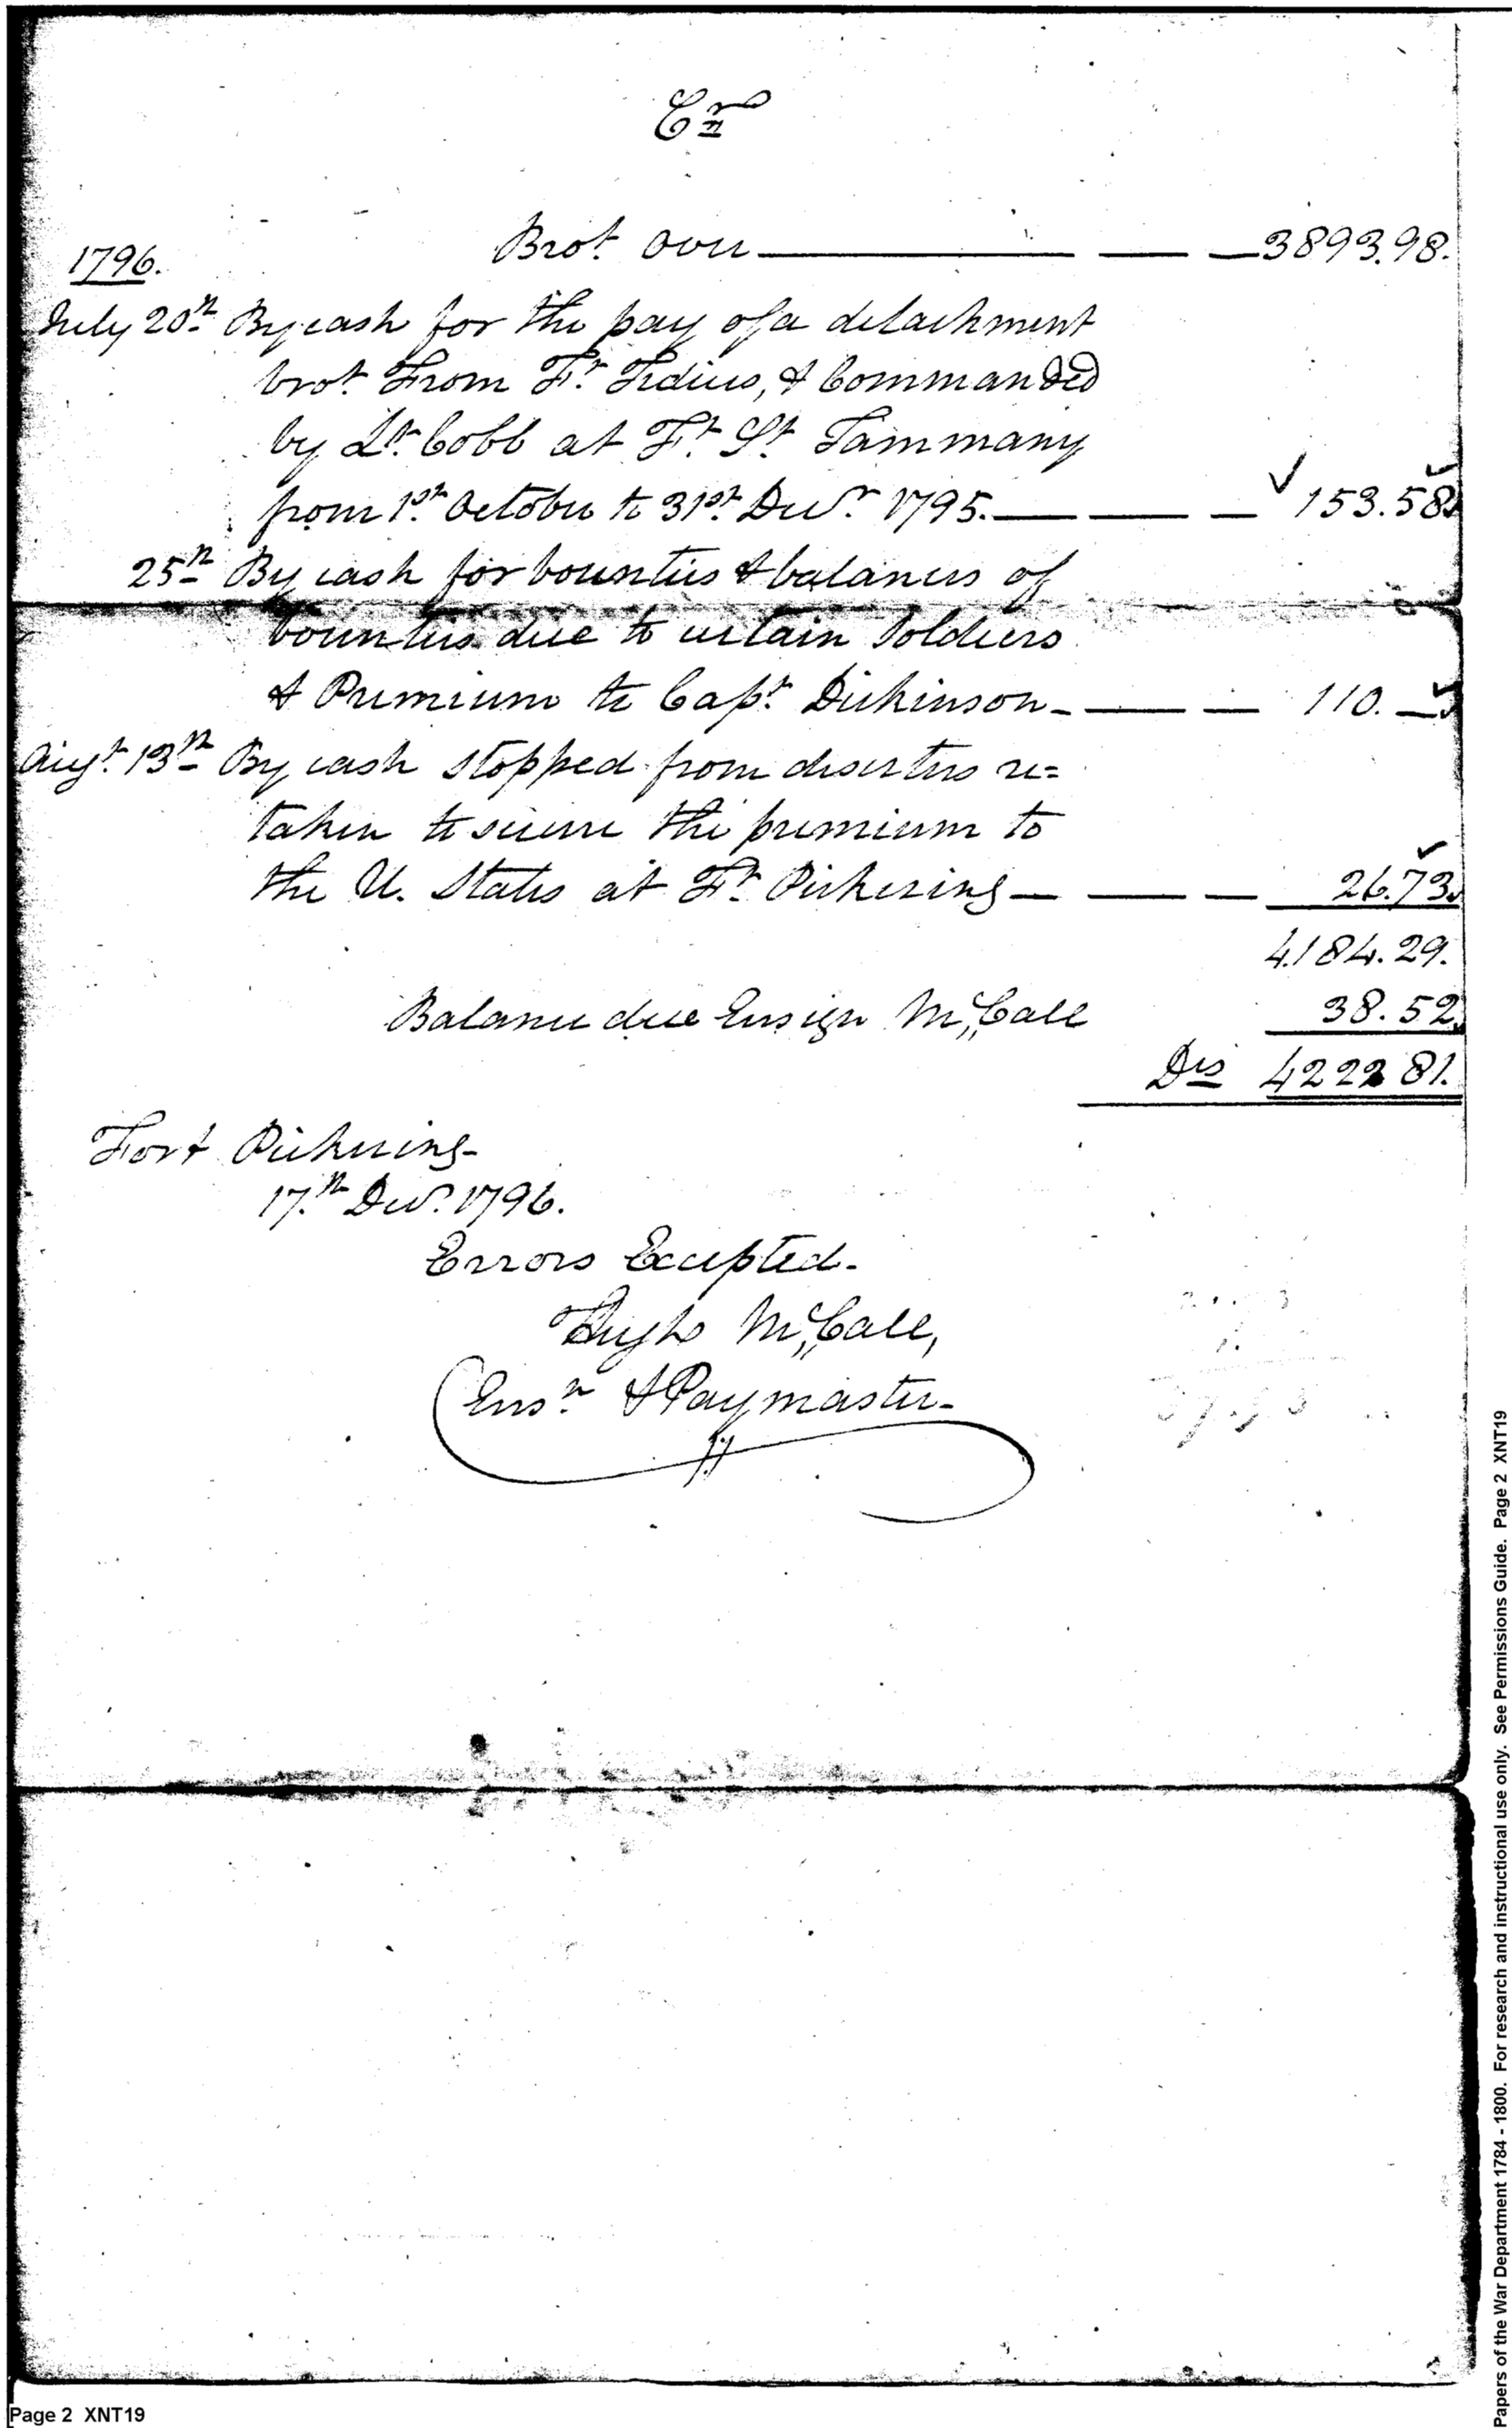 Cr
1796. Brot. over 3893.98.
July 20th By cash for the pay of a detachment
brot. From Ft. Fidius, & Commanded
by Lt. Cobb at Ft. St. Tammany
from 1st. October to 31st. Decr. 1795. 153.58.
25th By cash for bounties & balances of
bounties due to certain Soldiers
& Premium to Capt. Dickinson 110.
Augt. 13th By cash stopped from deserters re=
taken to secure the premium to
the U. States at Ft. Pickering 26.73.
4184.29.
Balance due Ensign McCall 38.52.
Drs 4222 81.
Fort Pickering
17th Decr. 1796.
Errors Excepted.
Hugh McCall,
Ensn. & Paymaster
Page 2 XNT19
Papers of the War Department 1784 - 1800. For research and instructional use only. See Permissions Guide. Page 2 XNT19